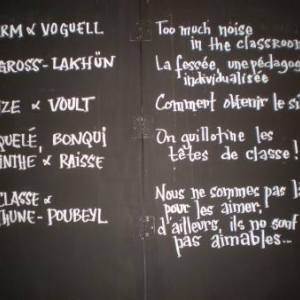 RM & VOGUELL
Too much noise
in the classroom
GROSS-LAKHÜN
La fessée, une pédagog
individualisée
ZE & VOULT
Comment obtenir le si
QUELÉ, BONQUI
INTHE & RAISSE
On guillotine les
têtes de classe !
CLASSE &
THUNE-POUBEYL
Nous ne sommes pas là
pour les aimer,
d'ailleurs, ils ne sont
pas aimables...